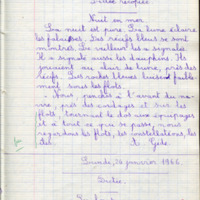 Dictée recopiée
Nuit en mer
La nuit est pure. La lune éclaire
les falaises. Des récifs bleus se sont
montrés. Le veilleur les a signalés.
Il a signalé aussi les dauphins. Ils
jouaient au clair de lune, près des
récifs. Les roches bleues luisent faible
ment sous les flots.
Nous, penchés à l'avant du na-
vire, près des cordages et sur les
flots, tournant le dos aux équipages
et à tout ce qui se passe, nous
regardons les flots, les constellations, les
îles. A. Gide
Samedi, 26 janvier 1966.
Dictée.